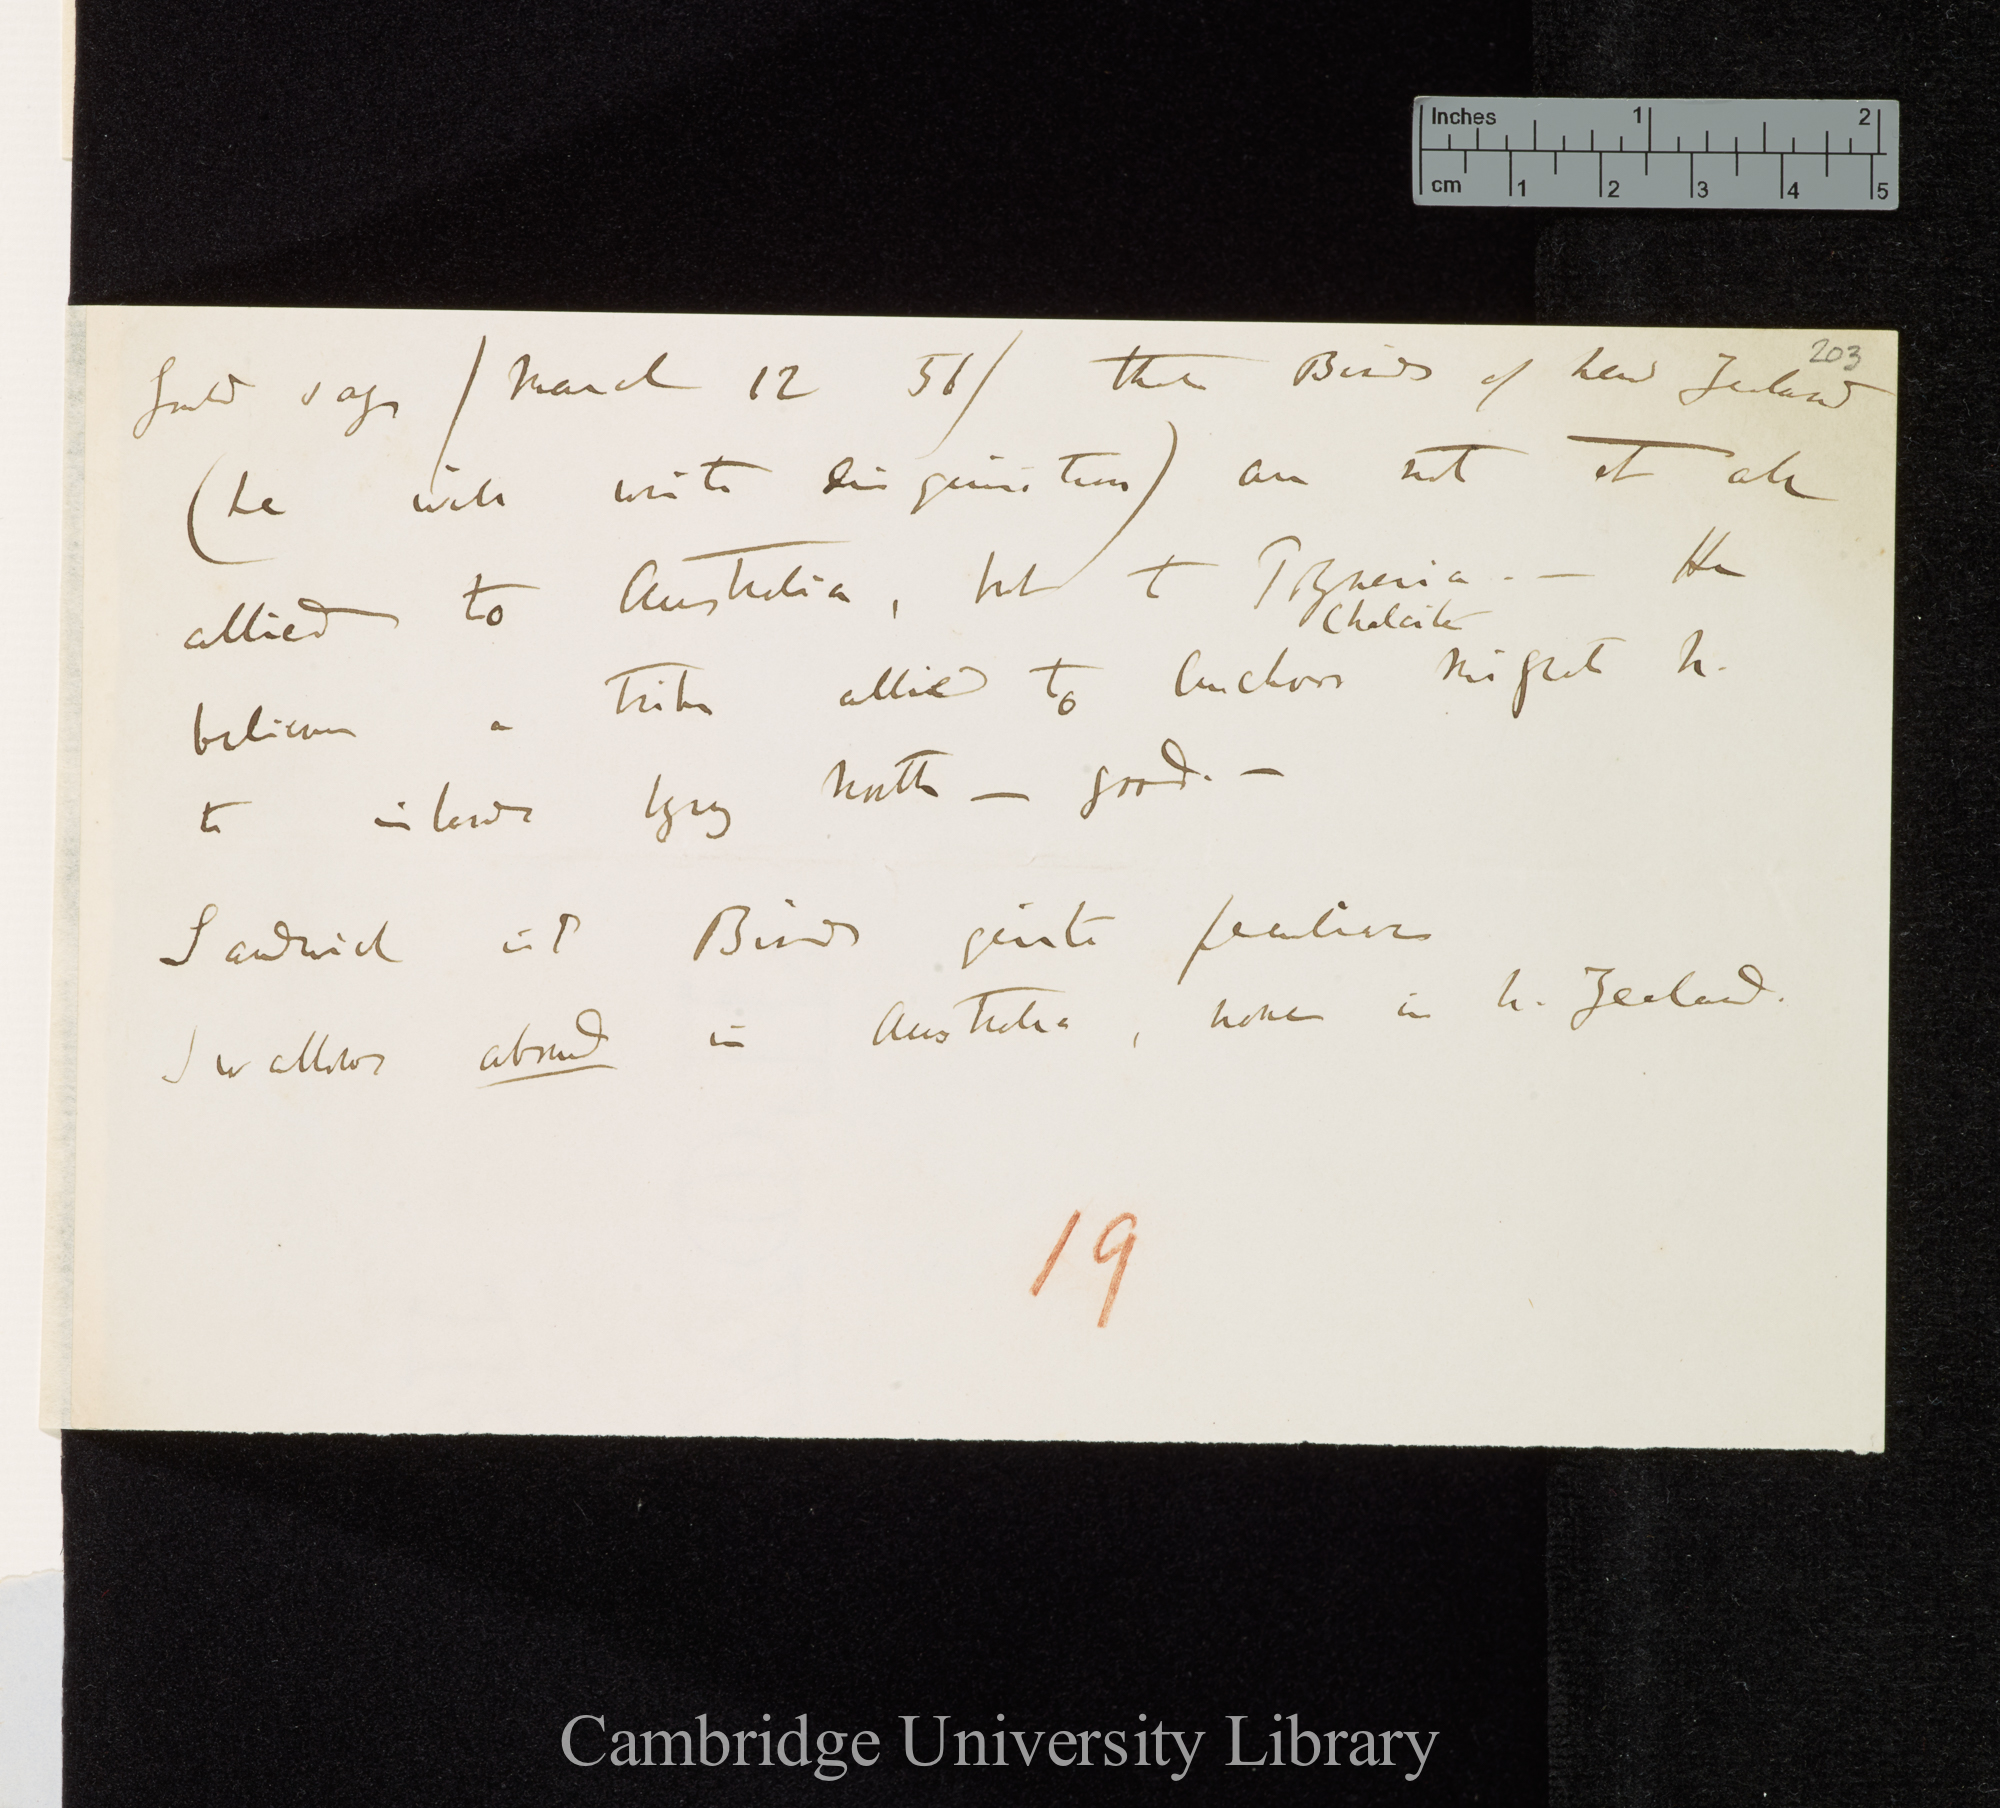 Inches 1 2
cm 1 2 3 4 5
203
Gould says /March 12 56/ that Birds of New Zealand
(he will write disquisition) are not at all
allied to Australia, but to Polynesia. — He
Chalcites
believes a tribe allied to Cuckoos migrate N.
to islands lying North — good. —
Sandwich isd Birds quite peculiar
Swallows abound in Australia, none in N. Zealand.
19
Cambridge University Library